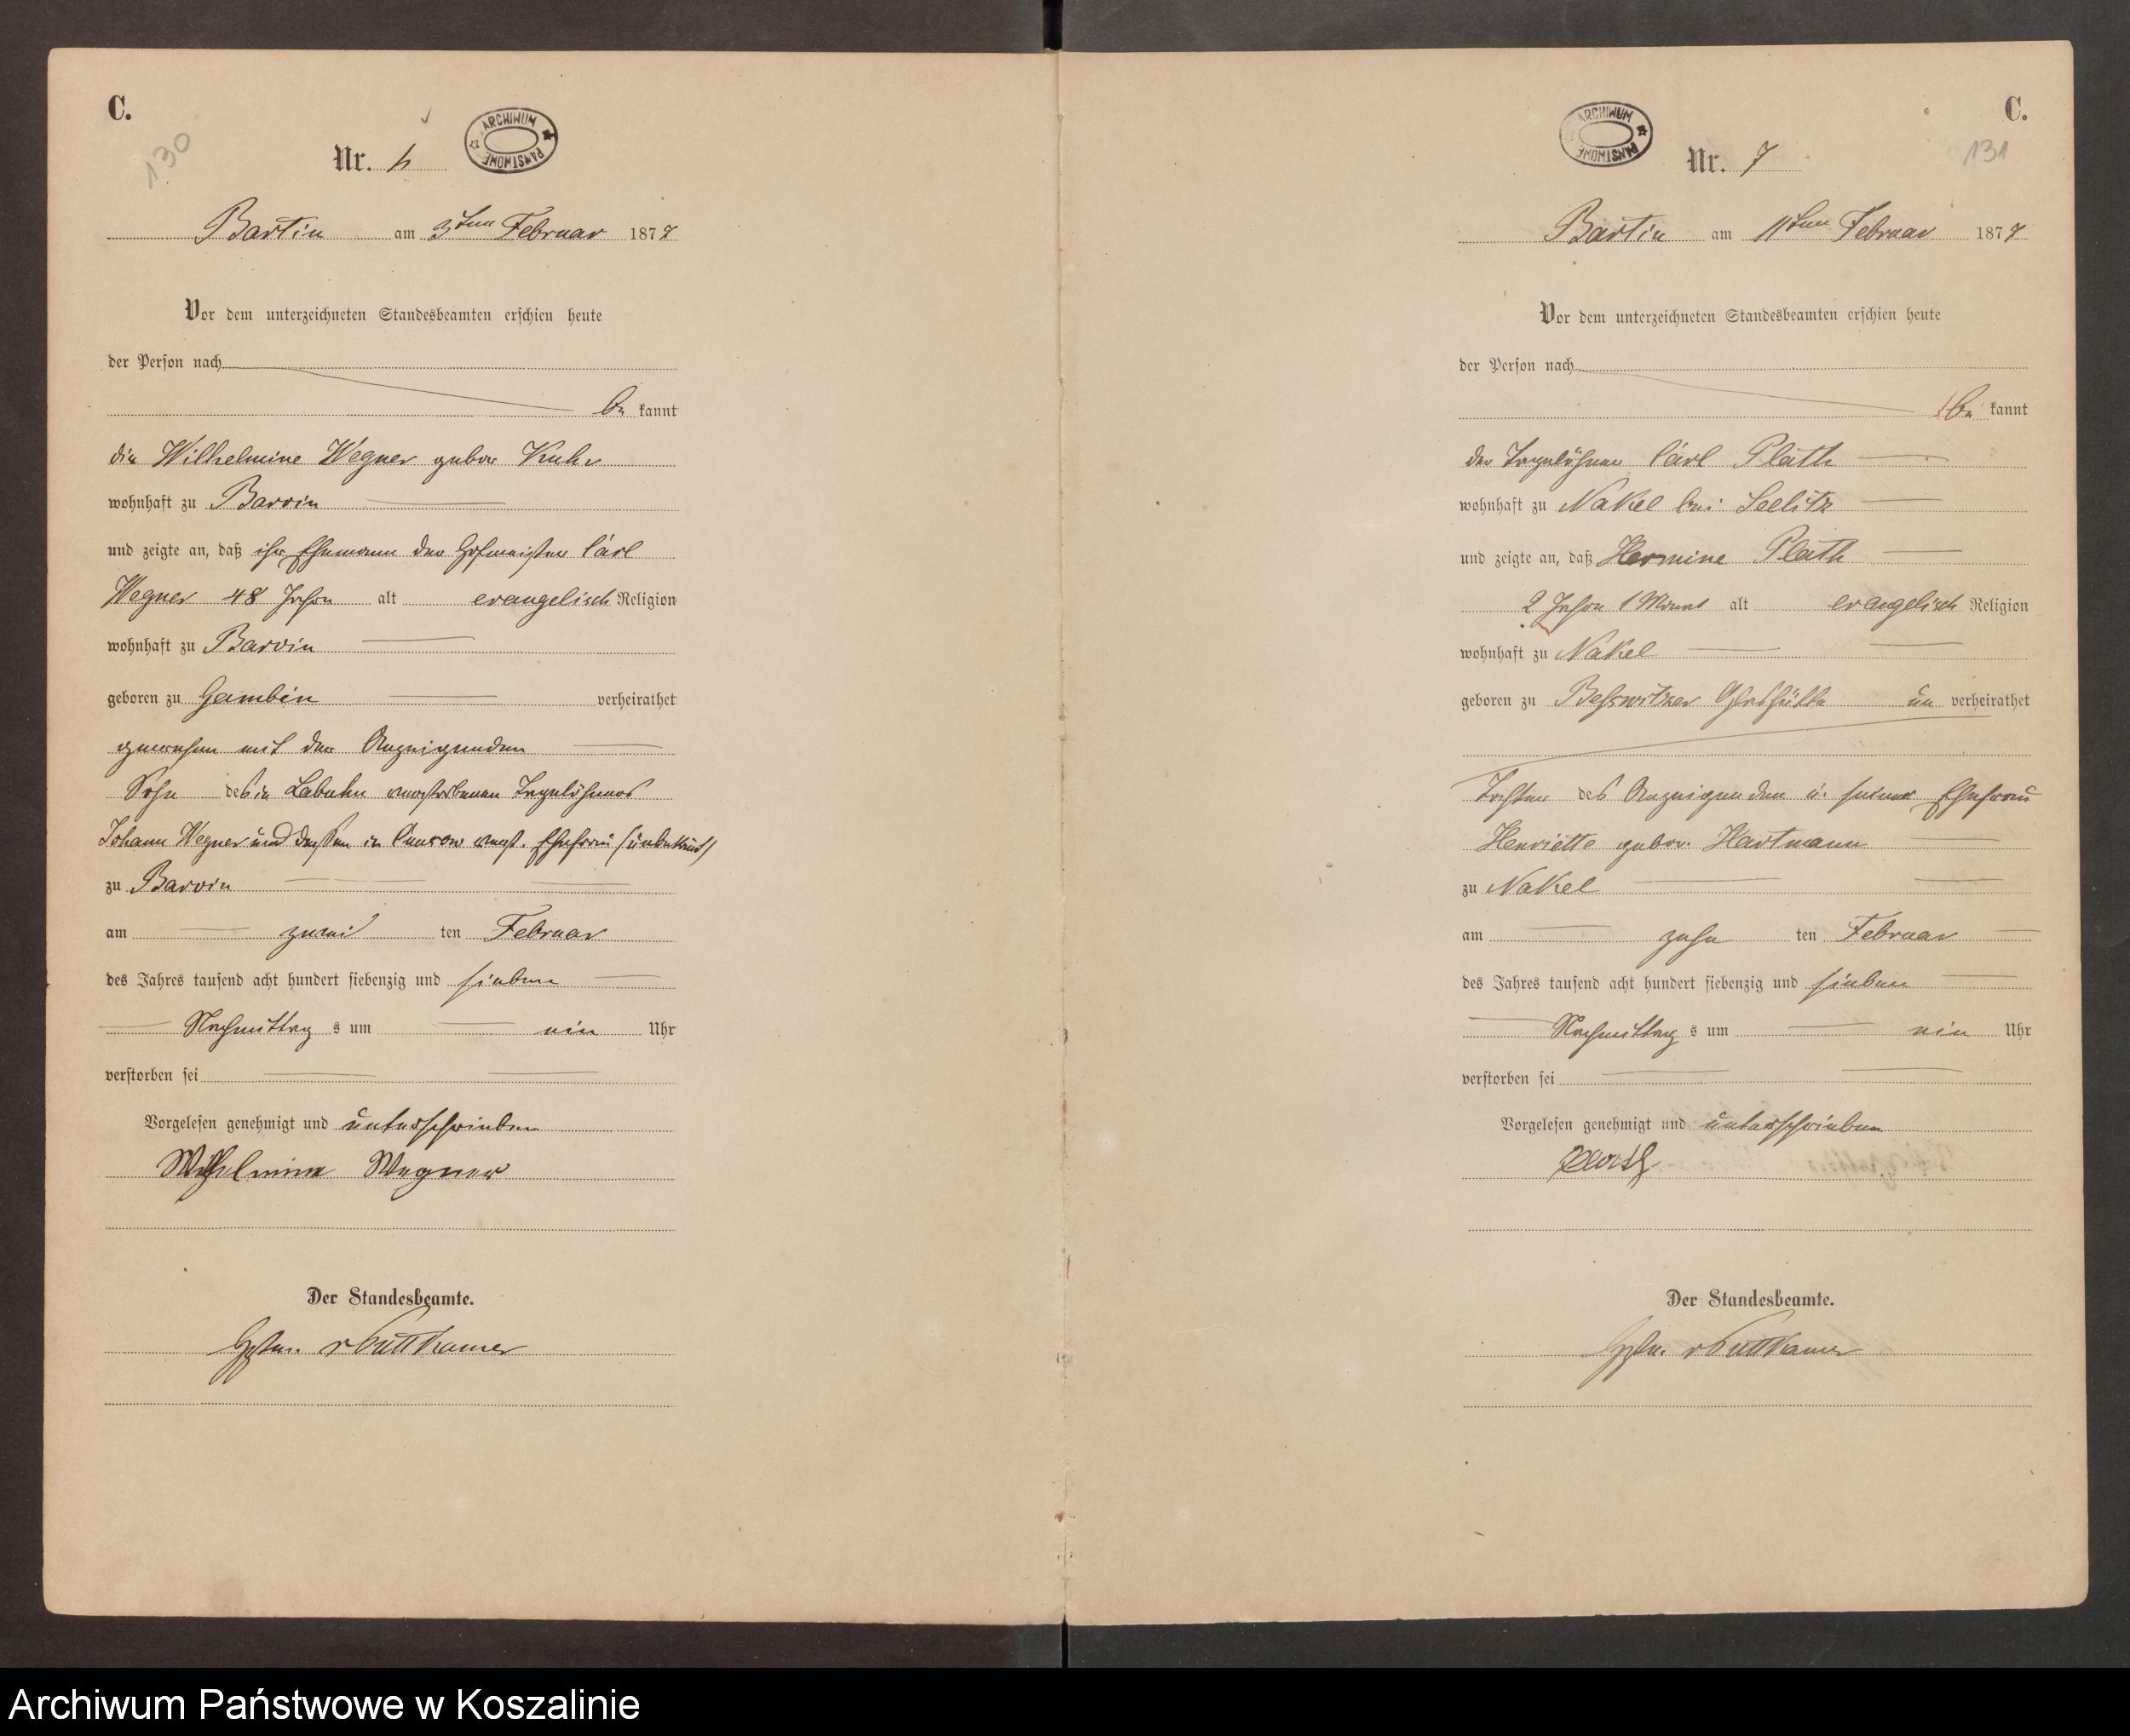 C.
130
Nr. 6
ARCHIWUM PAŃSTWOWE
Bartin am 3ten Februar 1877
Vor dem unterzeichneten Standesbeamten erschien heute
der Person nach
be kannt
die Wilhelmine Wegner gebor Kuhr
wohnhaft zu Barvin
und zeigte an, daß ihr Ehemann der Hofmeister Carl
Wegner 48 Jahre alt evangelisch Religion
wohnhaft zu Barvin
geboren zu Gambin verheirathet
gewesen mit der Anzeigenden
Sohn des in Labuhn verstorbenen Tagelöhners
Johann Wegner und dessen in verst. Ehefrau (unbekannt)
zu Barvin
am zwei ten Februar
des Jahres tausend acht hundert siebenzig und sieben
Nachmittag s um ein Uhr
verstorben sei
Vorgelesen genehmigt und unterschrieben
Wilhelmine Wegner
Der Standesbeamte.
v Puttkamer
C.
131
ARCHIWUM PAŃSTWOWE
Nr. 7
Bartin am 11ten Februar 1877
Vor dem unterzeichneten Standesbeamten erschien heute
der Person nach
be kannt
der Tagelöhner Carl Plath
wohnhaft zu Nakel bei Seelitz
und zeigte an, daß Hermine Plath
2 Jahre 1 Monat alt evangelisch Religion
wohnhaft zu Nakel
geboren zu Beßwitzer Glashütte un verheirathet
Tochter des Anzeigenden u. seiner Ehefrau
Henriette gebor. Hartmann
zu Nakel
am zehn ten Februar
des Jahres tausend acht hundert siebenzig und sieben
Nachmittag s um ein Uhr
verstorben sei
Vorgelesen genehmigt und unterschrieben
Der Standesbeamte.
v Puttkamer
Archiwum Państwowe w Koszalinie